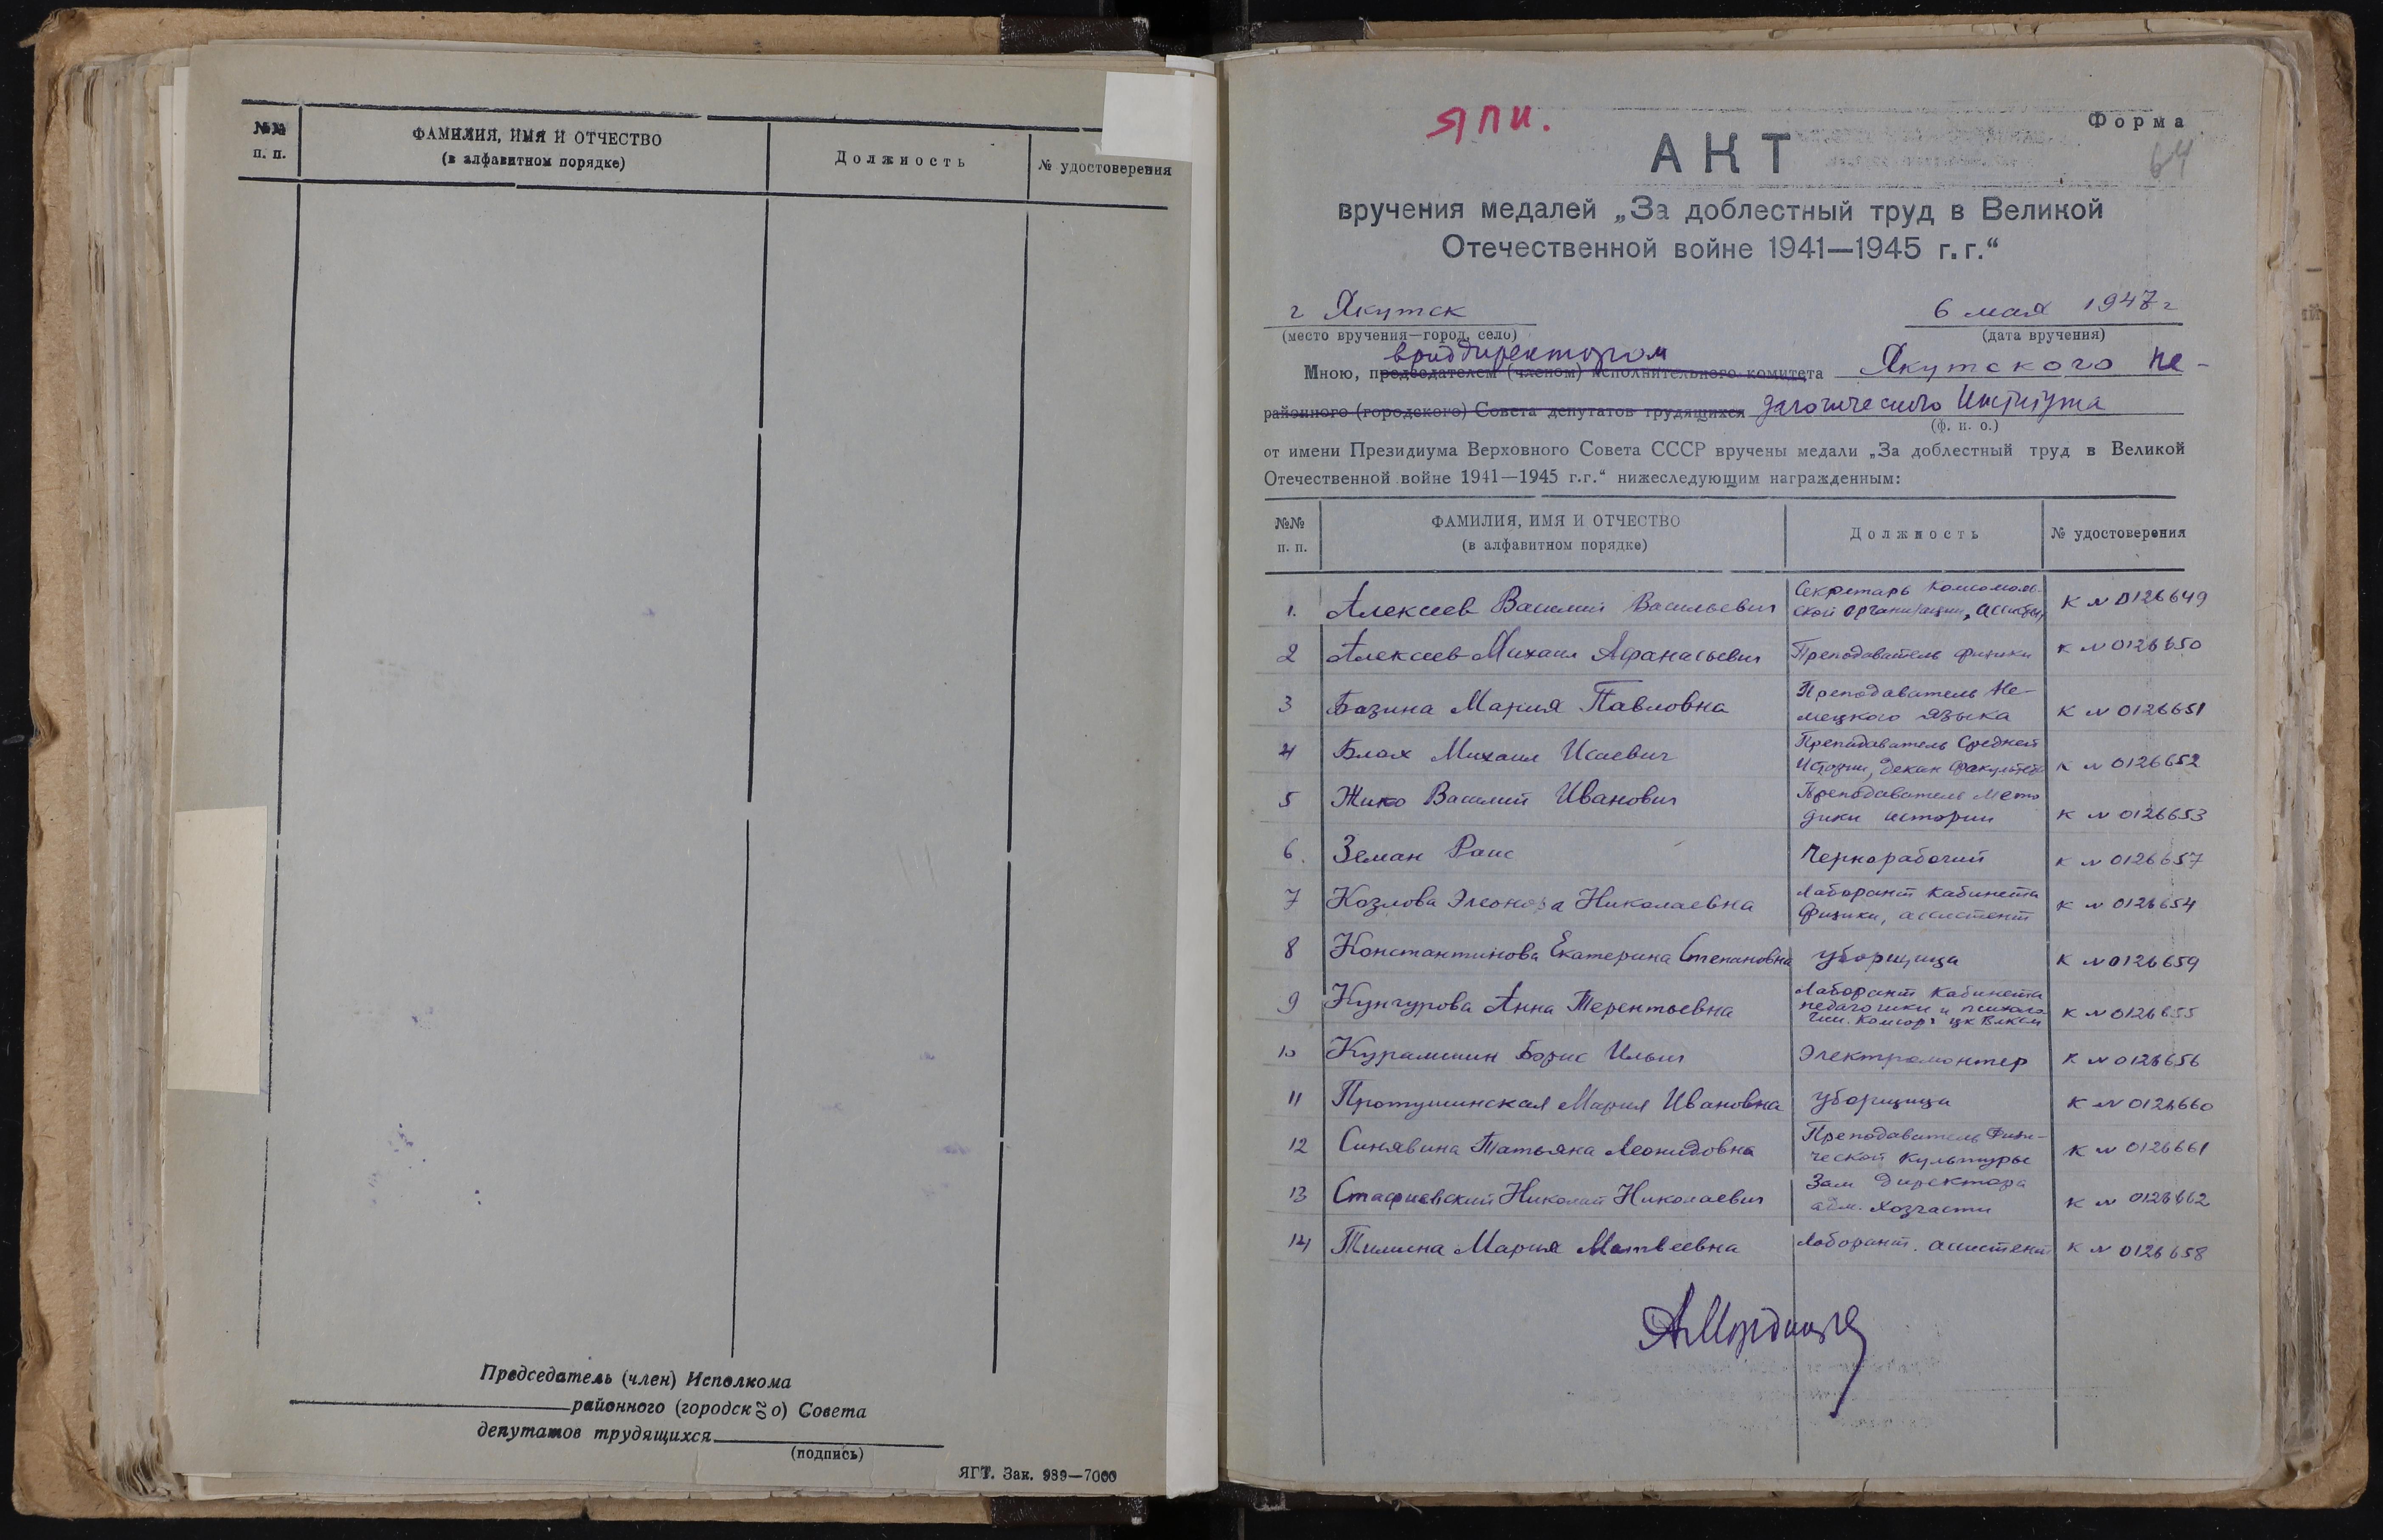 №№
п. п.
ФАМИЛИЯ, ИМЯ И ОТЧЕСТВО
(в алфавитном порядке)
Должность
№ удостоверения
Председатель (член) Исполкома
районного (городского) Совета
депутатов трудящихся
(подпись)
ЯГТ. Зак. 989—7000
ЯПИ.
Форма
64
АКТ
вручения медалей „За доблестный труд в Великой
Отечественной войне 1941—1945 г.г.“
г Якутск
6 мая 1947 г
(место вручения—город, село)
(дата вручения)
вриддиректором
Мною, председателем (членом) исполнительного комитета Якутского Пе-
районного (городского) Совета депутатов трудящихся дагогического Института
(ф. и. о.)
от имени Президиума Верховного Совета СССР вручены медали „За доблестный труд в Великой
Отечественной войне 1941—1945 г.г.“ нижеследующим награжденным:
№№
п. п.
ФАМИЛИЯ, ИМЯ И ОТЧЕСТВО
(в алфавитном порядке)
Должность
№ удостоверения
1. Алексеев Василий Васильевич
Секретарь Комсомоль-
ской организации,
К № 0126649
2 Алексеев Михаил Афанасьевич Преподаватель физики К № 0126650
3 Базина Мария Павловна
Преподаватель Не-
мецкого языка
К № 0126651
4 Блах Михаил Исаевич
Преподаватель Средней
Истории, декан факультета
К № 0126652
5 Жико Василий Иванович
Преподаватель Мето
дики истории
К № 0126653
6. Земан Раис Чернорабочий К № 0126657
7 Козлова Элеонора Николаевна
Лаборант Кабинета
Физики, ассистент
К № 0126654
8 Константинова Екатерина Степановна уборщица К № 0126659
9 Кунгурова Анна Терентьевна
Лаборант Кабинета
педагогики и психоло
гии. Комсорг ЦК ВЛКСМ
К № 0126655
10 Курамшин Борис Ильич Электромонтер К № 0126656
11 Протушинская Мария Ивановна уборщица К № 0126660
12 Синявина Татьяна Леонидовна
Преподаватель Физи-
ческой культуры
К № 0126661
13 Стафиевский Николай Николаевич
Зам директора
адм. хозчасти
К № 0126662
14 Тилина Мария Матвеевна Лаборант. ассистент К № 0126658